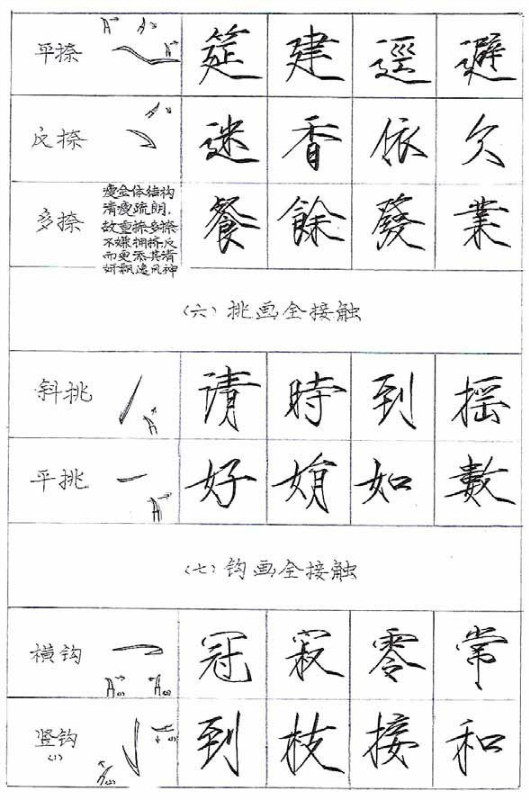 平捺 筵 建 逕 避
反捺 迷 香 依 欠
多捺
瘦金体结构
清瘦疏朗,
故重捺多捺
不嫌拥挤反
而更添其清
妍飘逸风神
餐 餘 發 業
(六)挑画全接触
斜挑 请 時 到 摇
平挑 好 如 數
(七)钩画全接触
横钩 冠 寂 零 常
竖钩 到 枝 接 和
(1)